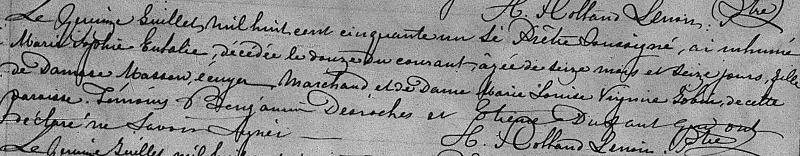 H. Holland Lenoir. Ptre
Le Quinze Juillet, mil huit cent cinquante un Je Prêtre Soussigné, ai inhumé
Marie Sophie Eulalie, décédée le douze du courant, agée de seize mois et seize jours, fille
de Damase Masson, ecuyer Marchand et de Dame Marie Louise Virginie Jobin, de cette
paroisse. Témoins Benjamin Desroches et Etienne Dufant qui ont
déclaré ne savoir signer
H. Holland Lenoir. Ptre
Le Quinze Juillet mil h